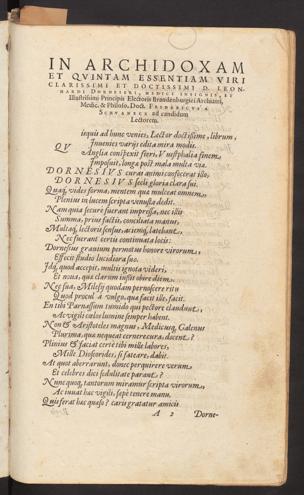 IN ARCHIDOXAM
ET QVINTAM ESSENTIAM VIRI
CLARISSIMI ET DOCTISSIMI D. LEON-
HARDI DORNESII, MEDICI INSIGNIS, ET
Illustrissimi Principis Electoris Brandenburgici Archiatri,
Medic. & Philoso. Doct. FRIDERICVS A
ad candidum
Lectorem.
QV
isquis ad hunc venies, Lector doctissime, librum,
Inuenies varijs edita mira modis.
Anglia conspexit fieri, Vuestphalia finem
Imposuit, longa post mala multa via.
DORNESIVS curas animi confecerat illo.
DORNESIVS secli gloria clara sui.
Quaq, vides forma, mentem qua mulceat omnem,
Plenius in lucem scripta venusta dedit.
Nam quia secure fuerant impressa, nec illis
Summa, prius factis, conciliata manus,
Multaq, lectoris sensus, aciemq, latebant,
Nec fuerant certis continuata locis:
Dornesius gratum permotus honore virorum,
Effecit studio lucidiora suo.
Idq, quod accepit, multis ignota videri,
Et noua, qua clarum iussit obire diem.
Nec sua, Milesij quodam pernoscere ritu
Quod procul a vulgo, qua facit ille, facit.
En tibi Parnassum tumido qui pectore claudunt,
Ac vigili cœlos lumine semper habent.
Non & Aristoteles magnus, Medicusq, Galenus
Plurima, qua nequeat cernere cura, docent?
Plinius & faciat certè tibi mille labores,
Mille Dioscorides, si fateare, dabit.
At quot aberrarunt, donec perquirere verum
Et celebres dici sedulitate parant?
Nunc quoq, tantorum miramur scripta virorum,
Ac iuuat hac vigili, sæpe tenere manu.
Quis ferat hac quaso? caris gratatur amicis
A 2 Dorne-